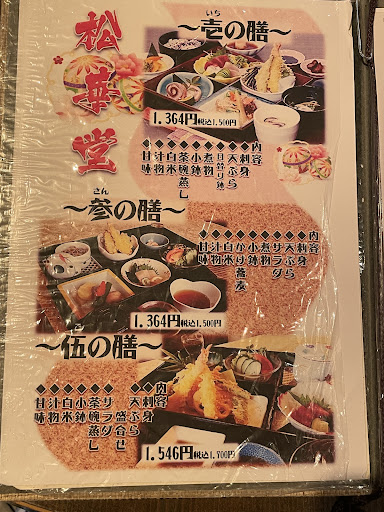 松華堂
いち
〜壱の膳〜
1.364円税込1.500円
◆内容
◆刺身
◆天ぷら
◆日替り鉢
◆煮物
◆小鉢
◆茶碗蒸し
◆白米
◆汁物
◆甘味
さん
〜参の膳〜
1.364円税込1.500円
◆内容
◆刺身
◆天ぷら
◆サラダ
◆煮物
◆小鉢
◆かけ蕎麦
◆白米
◆汁物
◆甘味
〜伍の膳〜
1.546円税込1.700円
◆内容
◆刺身
◆天ぷら
盛合せ
◆サラダ
◆茶碗蒸し
◆小鉢
◆白米
◆汁物
◆甘味